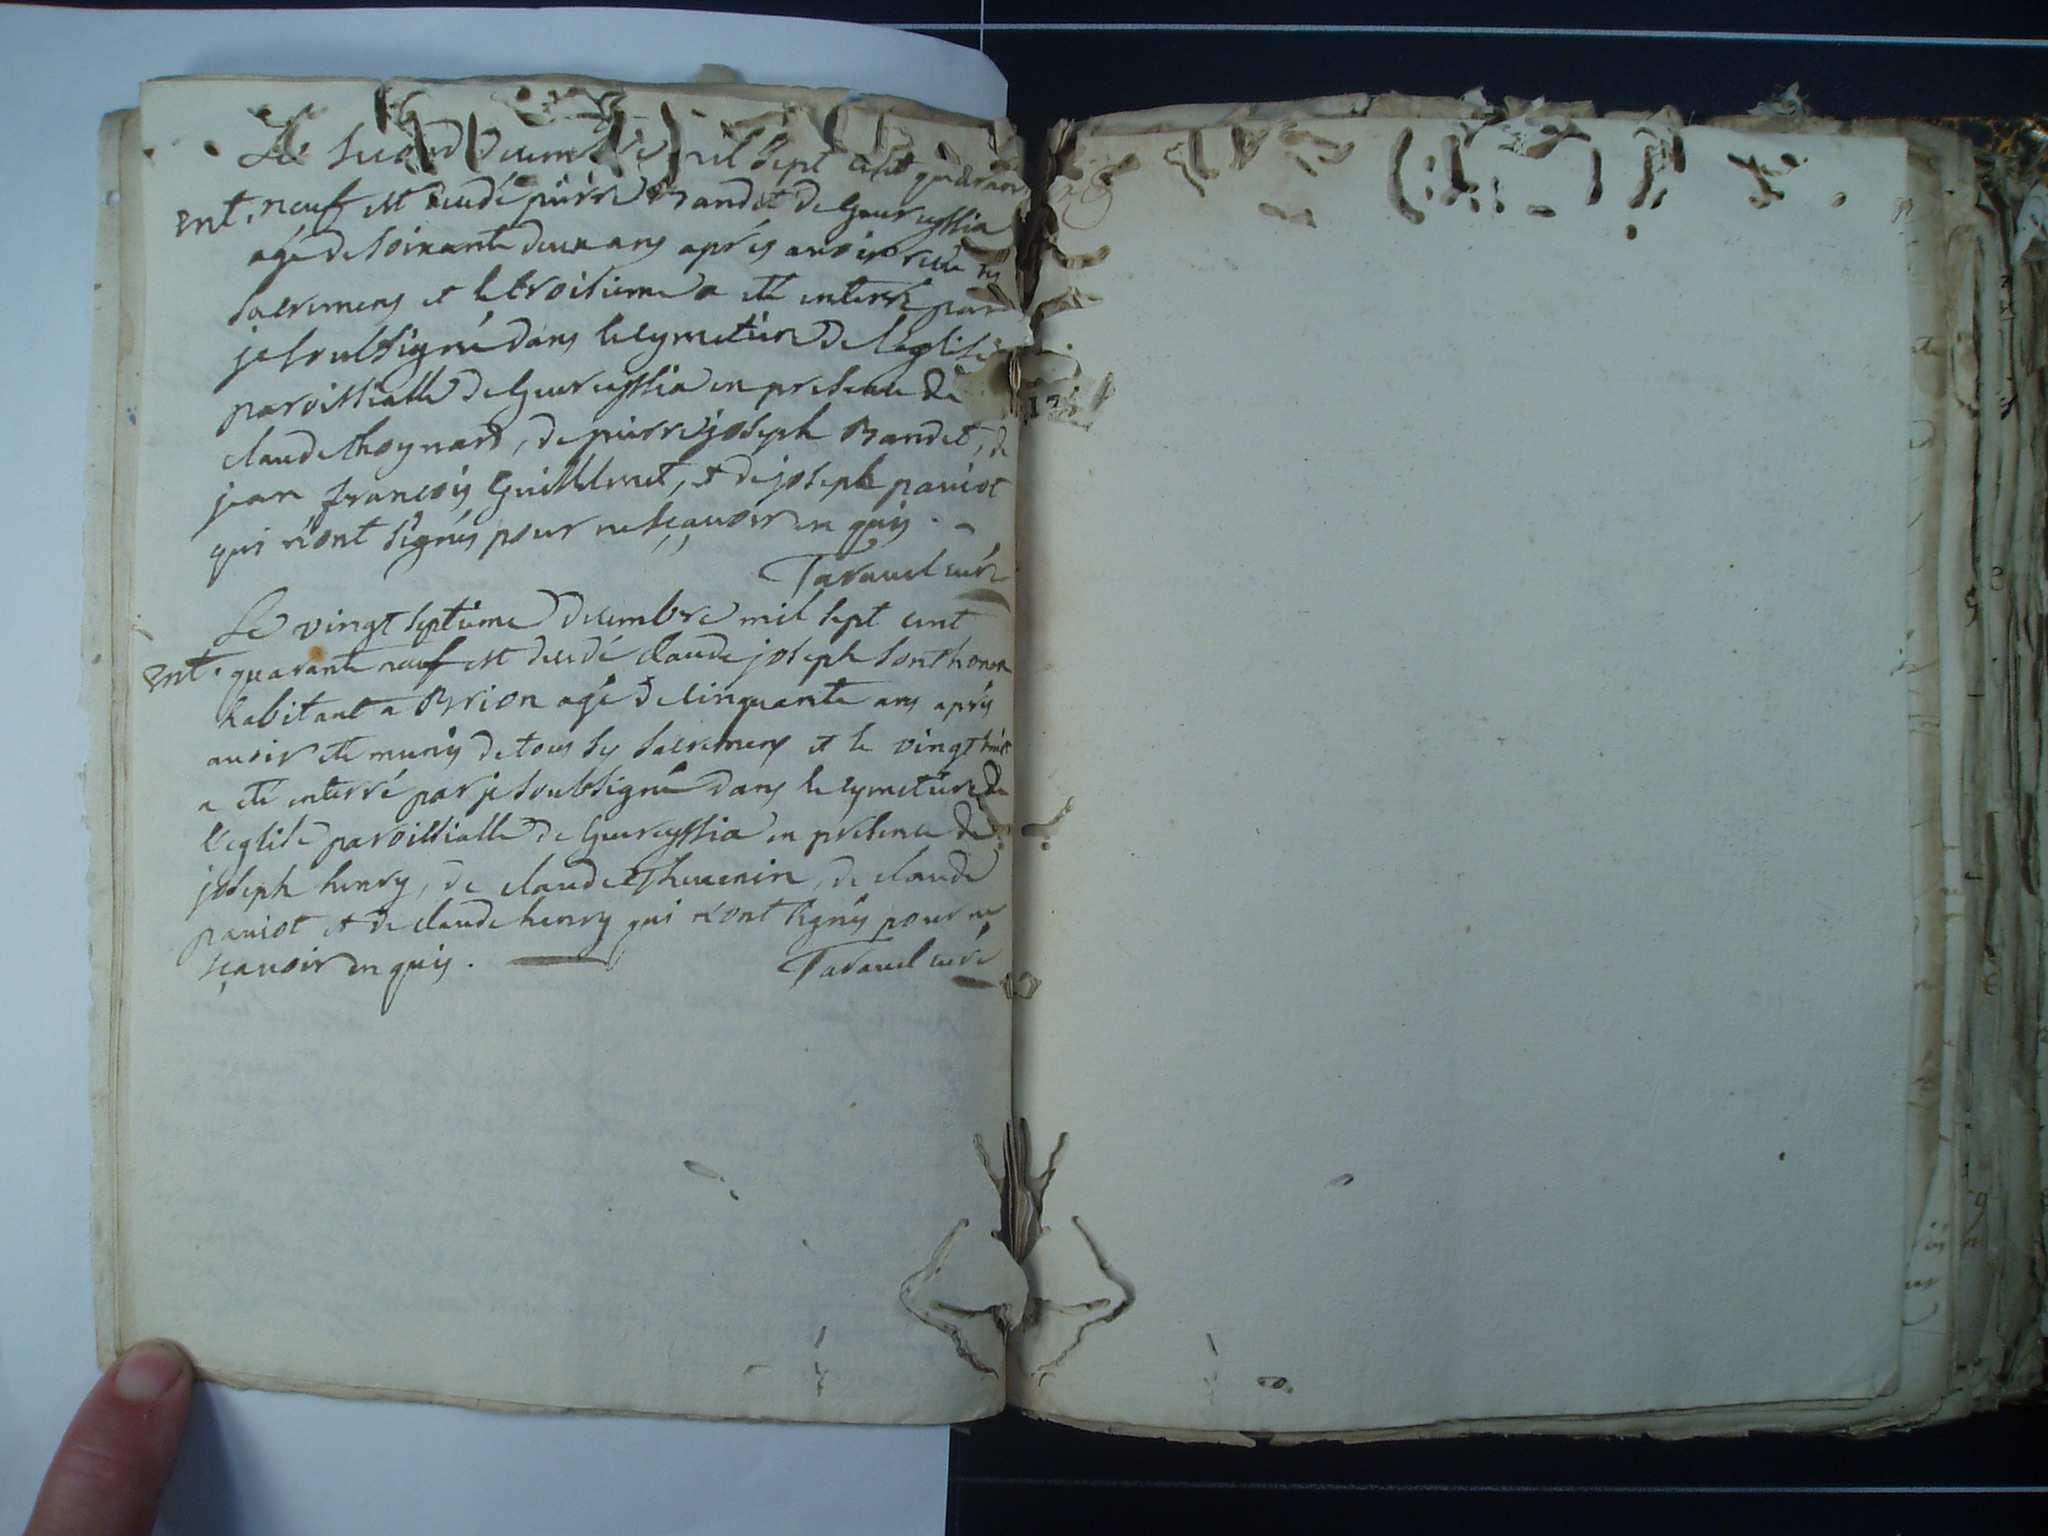 Le second decembre mil sept cent quaran
Ent. neuf est decedé pierre Bandet de Geureyssia
agé de soixante deux ans aprés avoir receu les
sacremens et le troisieme a eté enterré par
je soussigné dans le cymetiere de l'eglise
paroissialle de Geureyssia en presence de
claude thoynard, de pierre joseph Bandet, de
jean francois Guillelmet, et de joseph paniot
qui n'ont signés pour ne sçavoir en quis.
Taravel curé
Le vingt septieme decembre mil sept cent
Ent. quarante neuf est decedé claude joseph Sonthonax
habitant a Brion agé de cinquante ans aprés
avoir eté munis de tous les sacremens et le vingt huit
a eté enterré par je soubsigné dans le cymetiere de
l'eglise paroissialle de Geureyssia en presence de
joseph henry, de claude Thevenin, de claude
paniot et de claude henry qui n'ont signés pour ne
sçavoir en quis.
Taravel curé